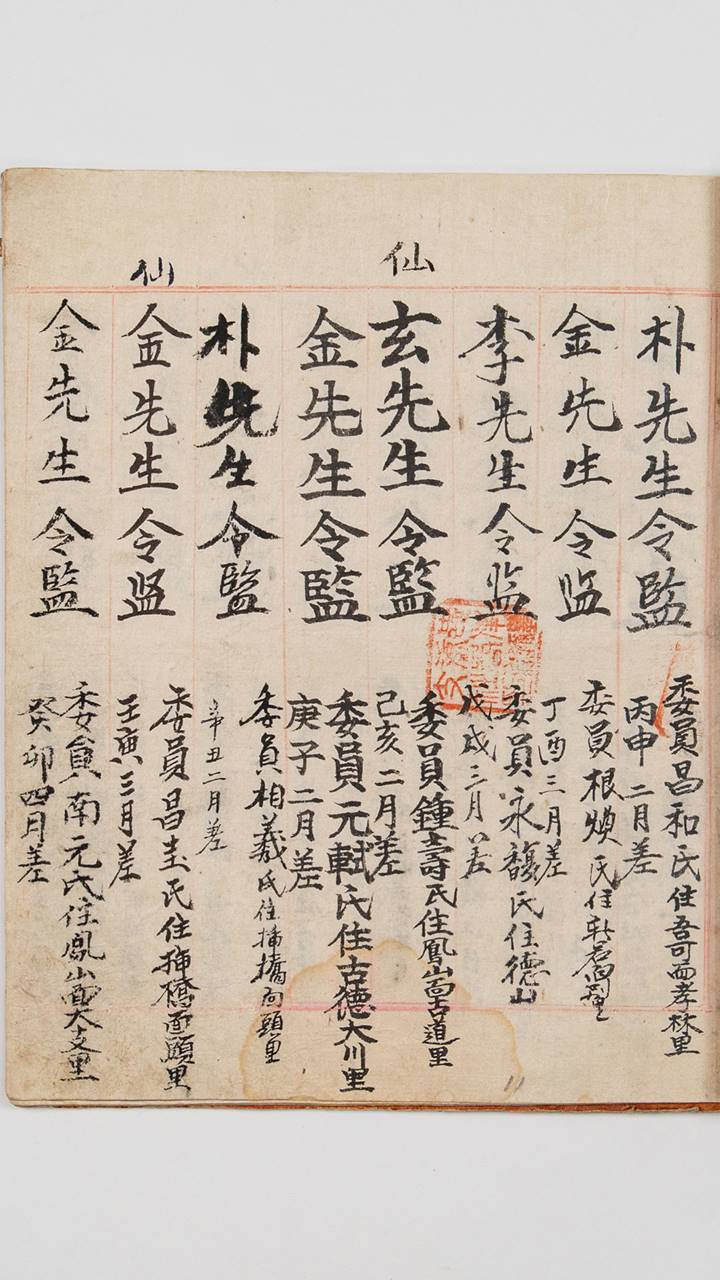 朴先生令監
委員昌和氏住吾可面孝林里
丙申二月差
金先生令监
委員根煥氏住
丁酉三月差
李先生令监
委員永馥氏住德山
戊戌三月差
仙
玄先生令監
委員鍾壽氏住鳳山面古道里
己亥二月差
金先生令監
委員元軾氏住古德大川里
庚子二月差
朴先生令監
委員相羲氏住揷橋面頭里
辛丑二月差
仙
金先生令监
委員昌圭氏住揷橋面頭里
壬寅三月差
金先生令監
委員南元氏住鳳山面大支里
癸卯四月差